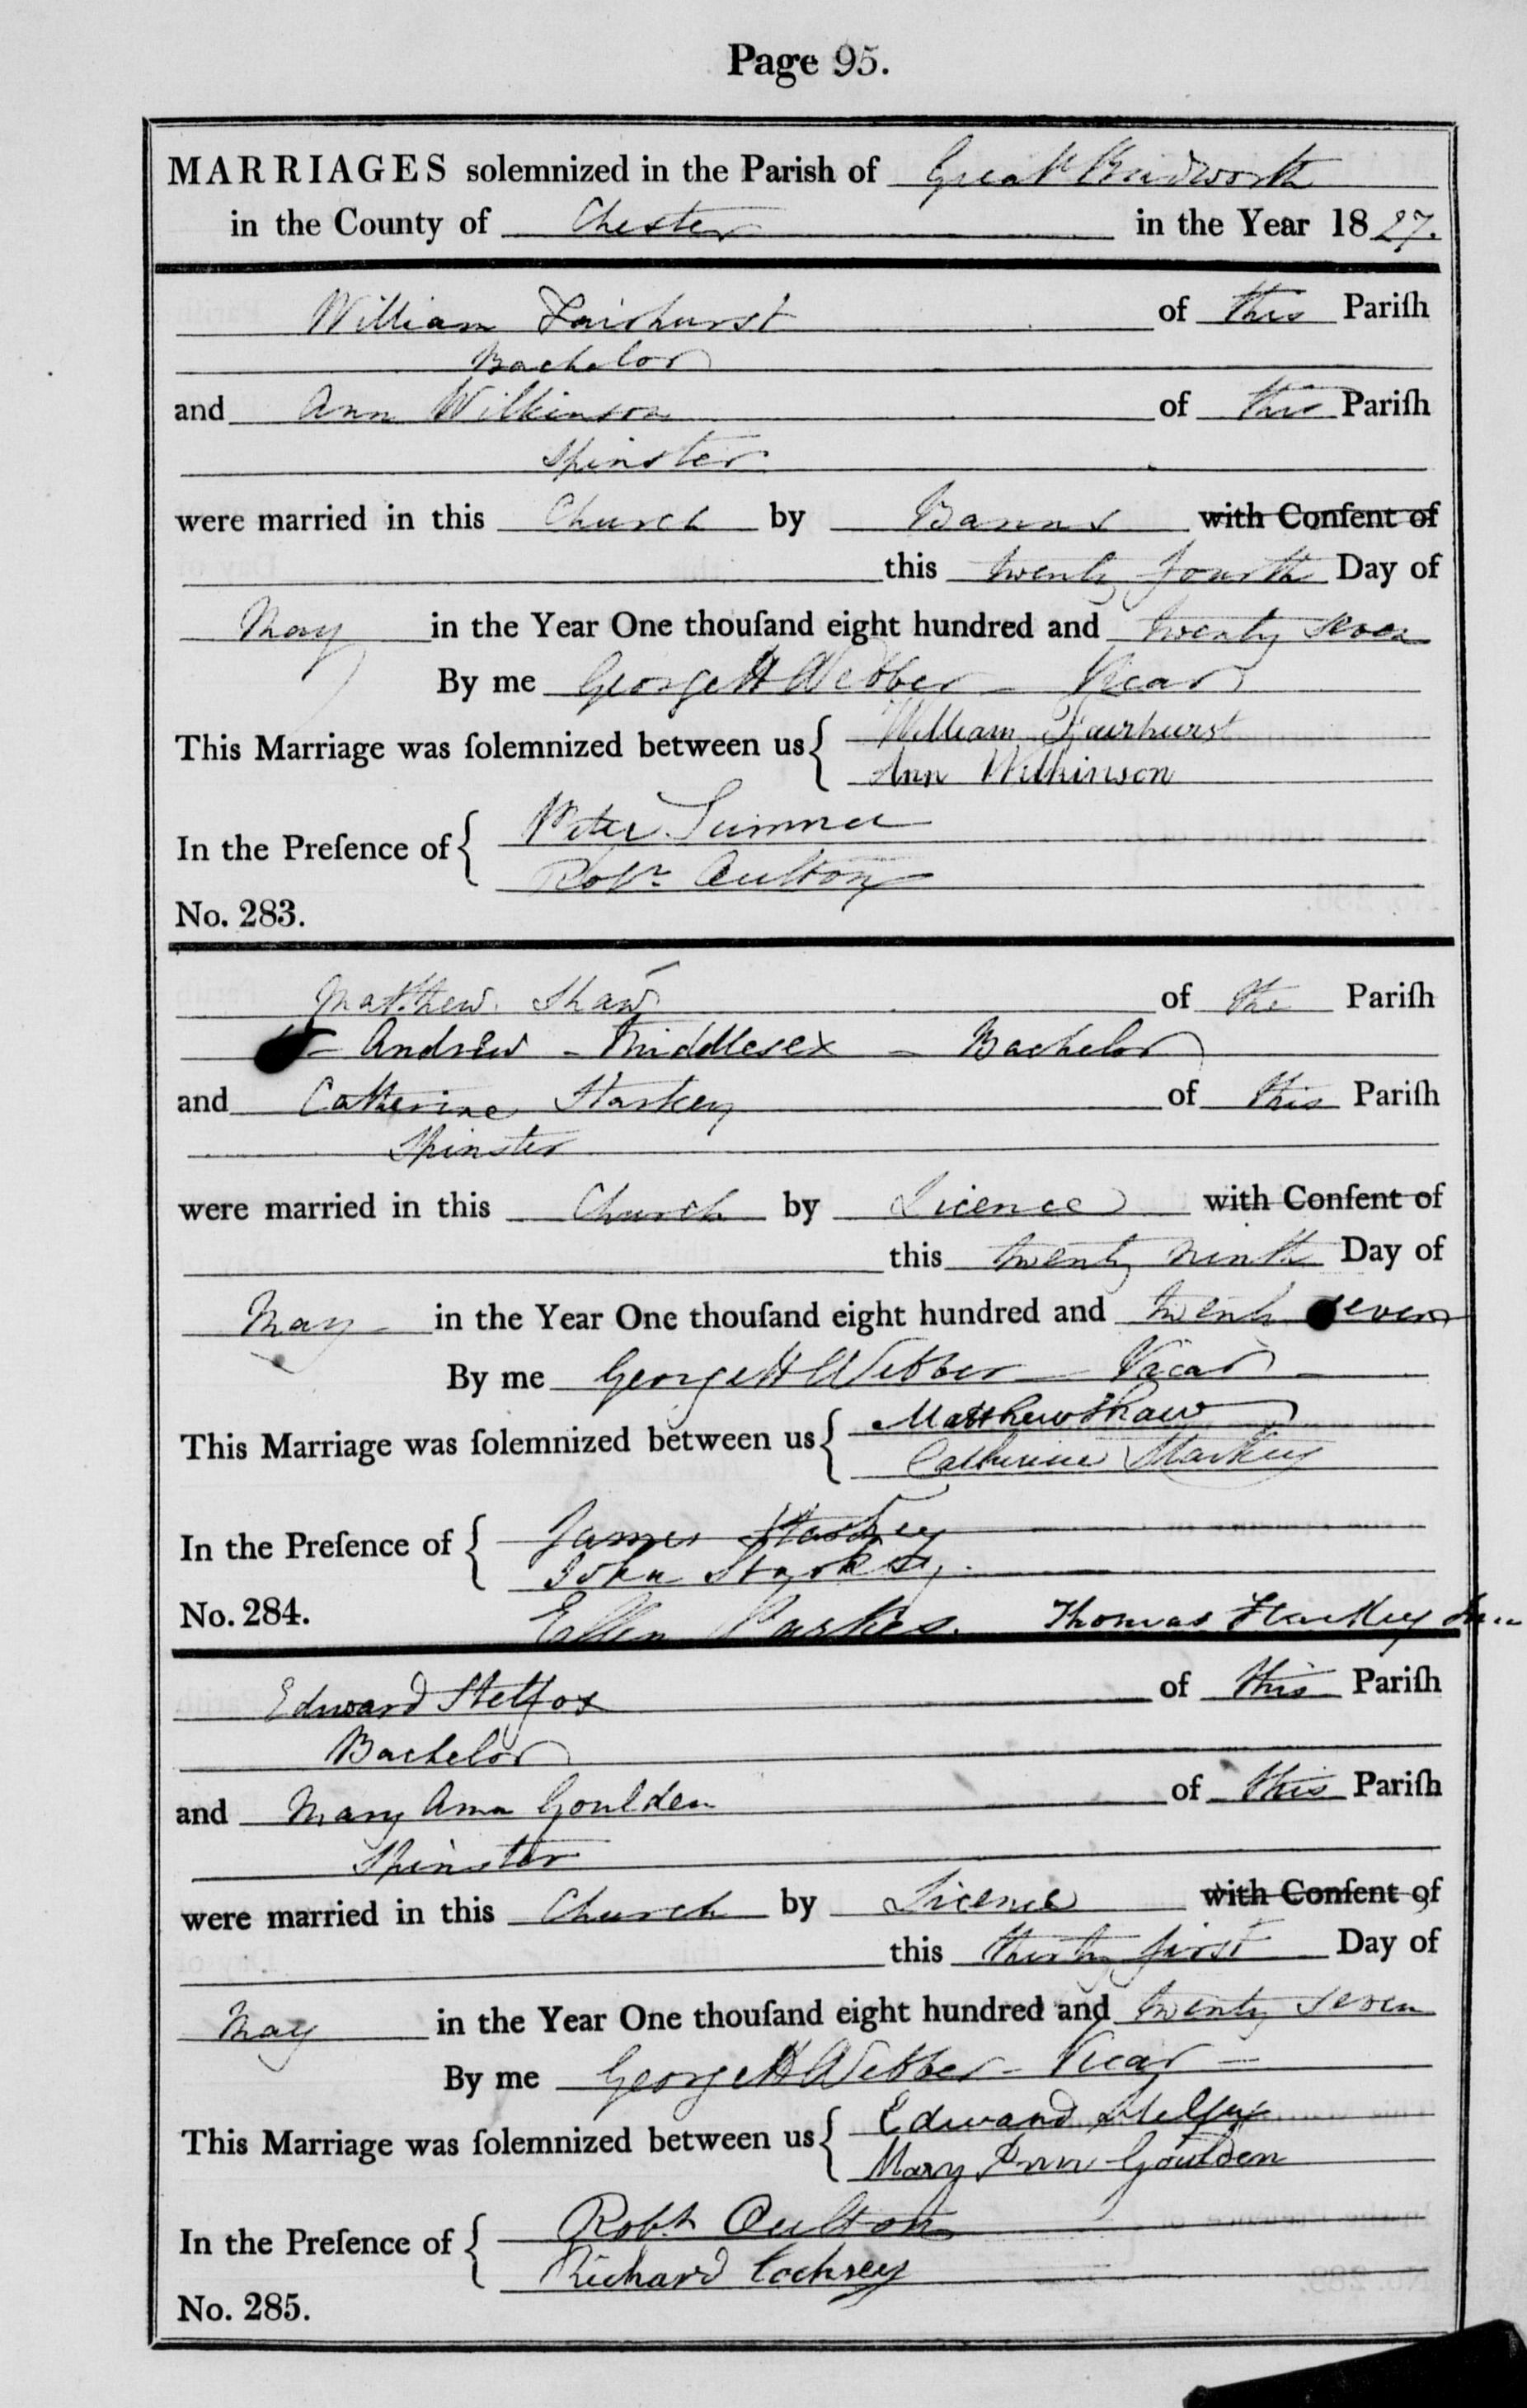 Page 95.
MARRIAGES solemnized in the Parish of Great Budworth
in the County of Chester in the Year 1827.
William Fairhurst of this Pariſh
Bachelor
and Ann Wilkinson of this Pariſh
Spinster
were married in this Church by Banns with Conſent of
this twenty fourth Day of
May in the Year One thouſand eight hundred and twenty seven
By me George H Webber - Vicar
This Marriage was ſolemnized between us { William Fairhurst
Ann Wilkinson
In the Preſence of { Peter Sumner
Robt Oulton
No. 283.
Matthew Shaw of the Pariſh
Andrew - Middlesex - Bachelor
and Catherine Starkey of this Pariſh
Spinster
were married in this Church by Licence with Conſent of
this twenty ninth Day of
May in the Year One thouſand eight hundred and twenty seven
By me George H Webber - Vicar
This Marriage was ſolemnized between us { Matthew Shaw
Catherine Starkey
In the Preſence of { James Starkey
John Starkey.
No. 284. Ellen Parkes. Thomas Starkey
Edward Stelfox of this Pariſh
Bachelor
and Mary Ann Goulden of this Pariſh
Spinster
were married in this Church by Licence with Conſent of
this thirty first Day of
May in the Year One thouſand eight hundred and twenty seven
By me George H Webber - Vicar -
This Marriage was ſolemnized between us { Edward Stelfox
Mary Ann Goulden
In the Preſence of { Robt Oulton
Richard Cocksey
No. 285.